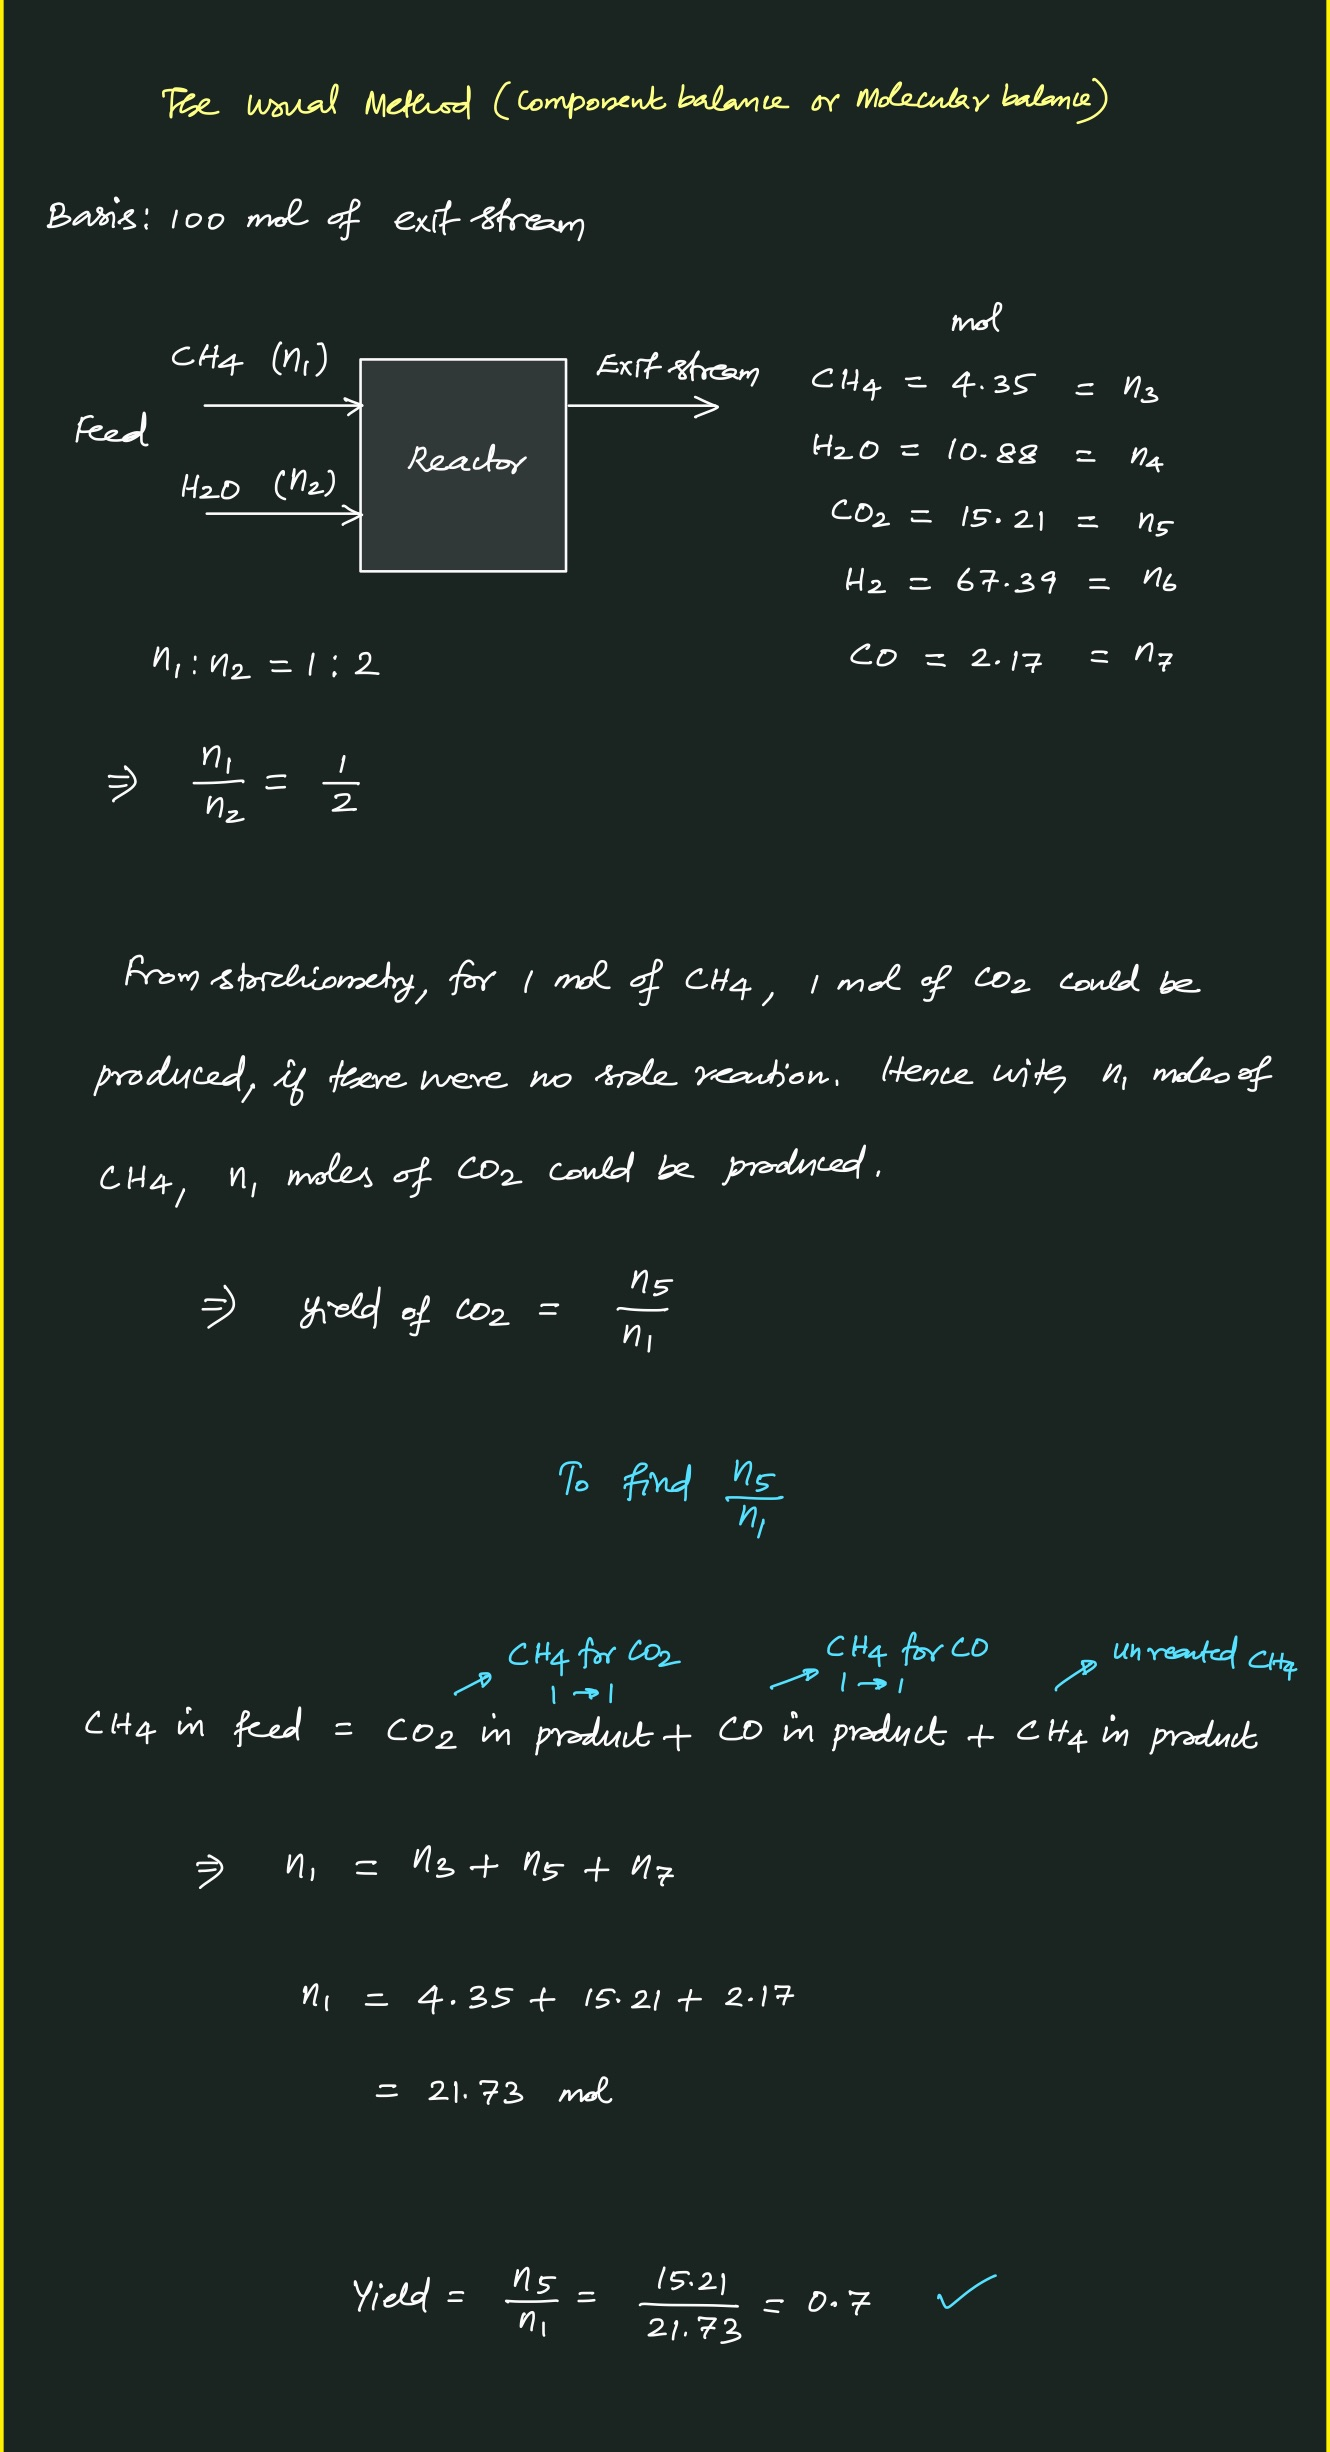 The usual Method (Component balance or Molecular balance)
Basis: 100 mol of exit stream
mol
CH4 (n1)
Exit stream
CH4 = 4.35 = n3
Feed
Reactor
H2O = 10.88 = n4
H2O (n2)
CO2 = 15.21 = n5
H2 = 67.39 = n6
n1 : n2 = 1 : 2
CO = 2.17 = n7
⇒ n1/n2 = 1/2
From stoichiometry, for 1 mol of CH4, 1 mol of CO2 could be
produced, if there were no side reaction. Hence with n1 moles of
CH4, n1 moles of CO2 could be produced.
⇒ yield of CO2 = n5/n1
To find n5/n1
CH4 for CO2
CH4 for CO
unreacted CH4
1 → 1
1 → 1
CH4 in feed = CO2 in product + CO in product + CH4 in product
⇒ n1 = n3 + n5 + n7
n1 = 4.35 + 15.21 + 2.17
= 21.73 mol
Yield = n5/n1 = 15.21/21.73 = 0.7 ✓